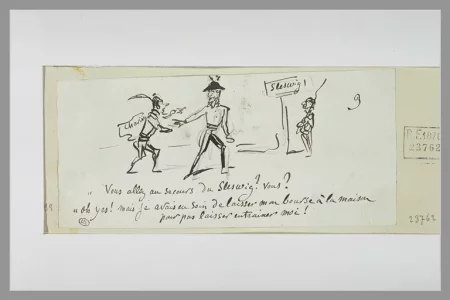 Sleswig!
9
„ Vous allez au secours du Sleswig? Vous?
„ oh yes! mais je avais eu soin de laisser mon bourse à la maison
pour pas laisser entrainer moi!
23762
23762